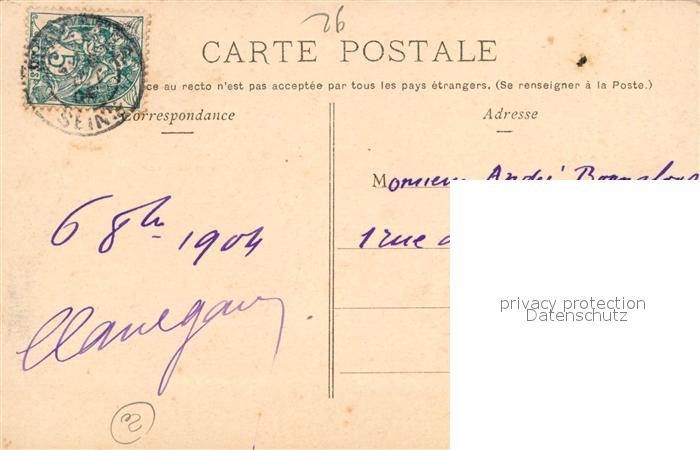 26
CARTE POSTALE
ce au recto n'est pas acceptée par tous les pays étrangers. (Se renseigner à la Poste.)
Correspondance
Adresse
Monsieur André
6 8bre 1904
1 rue
5
SEINE
privacy protection
Datenschutz